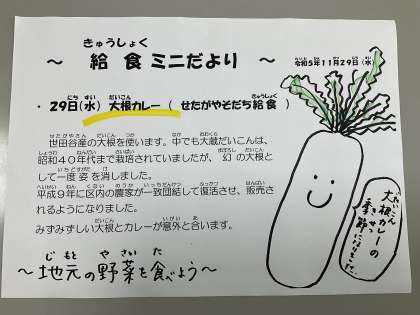 ～ 給食ミニだより ～
令和5年11月29日(水)
・29日(水) 大根カレー ( せたがやそだち給食 )
世田谷産の大根を使います。中でも大蔵だいこんは、
昭和40年代まで栽培されていましたが、幻の大根と
して一度姿を消しました。
平成9年に区内の農家が一致団結して復活させ、販売さ
れるようになりました。
みずみずしい大根とカレーが意外と合います。
大根カレーの
季節になりました。
～地元の野菜を食べよう～